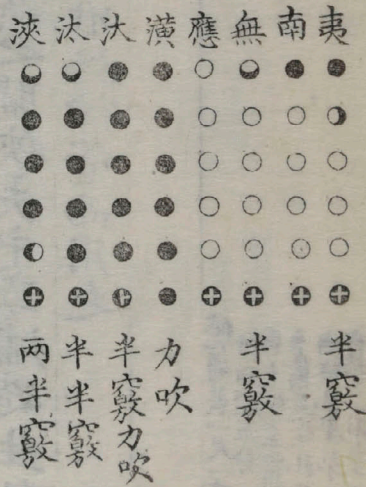 夷
半竅
南
無
半竅
應
潢
力吹
汏
半竅力吹
汰
半半竅
浹
两半竅